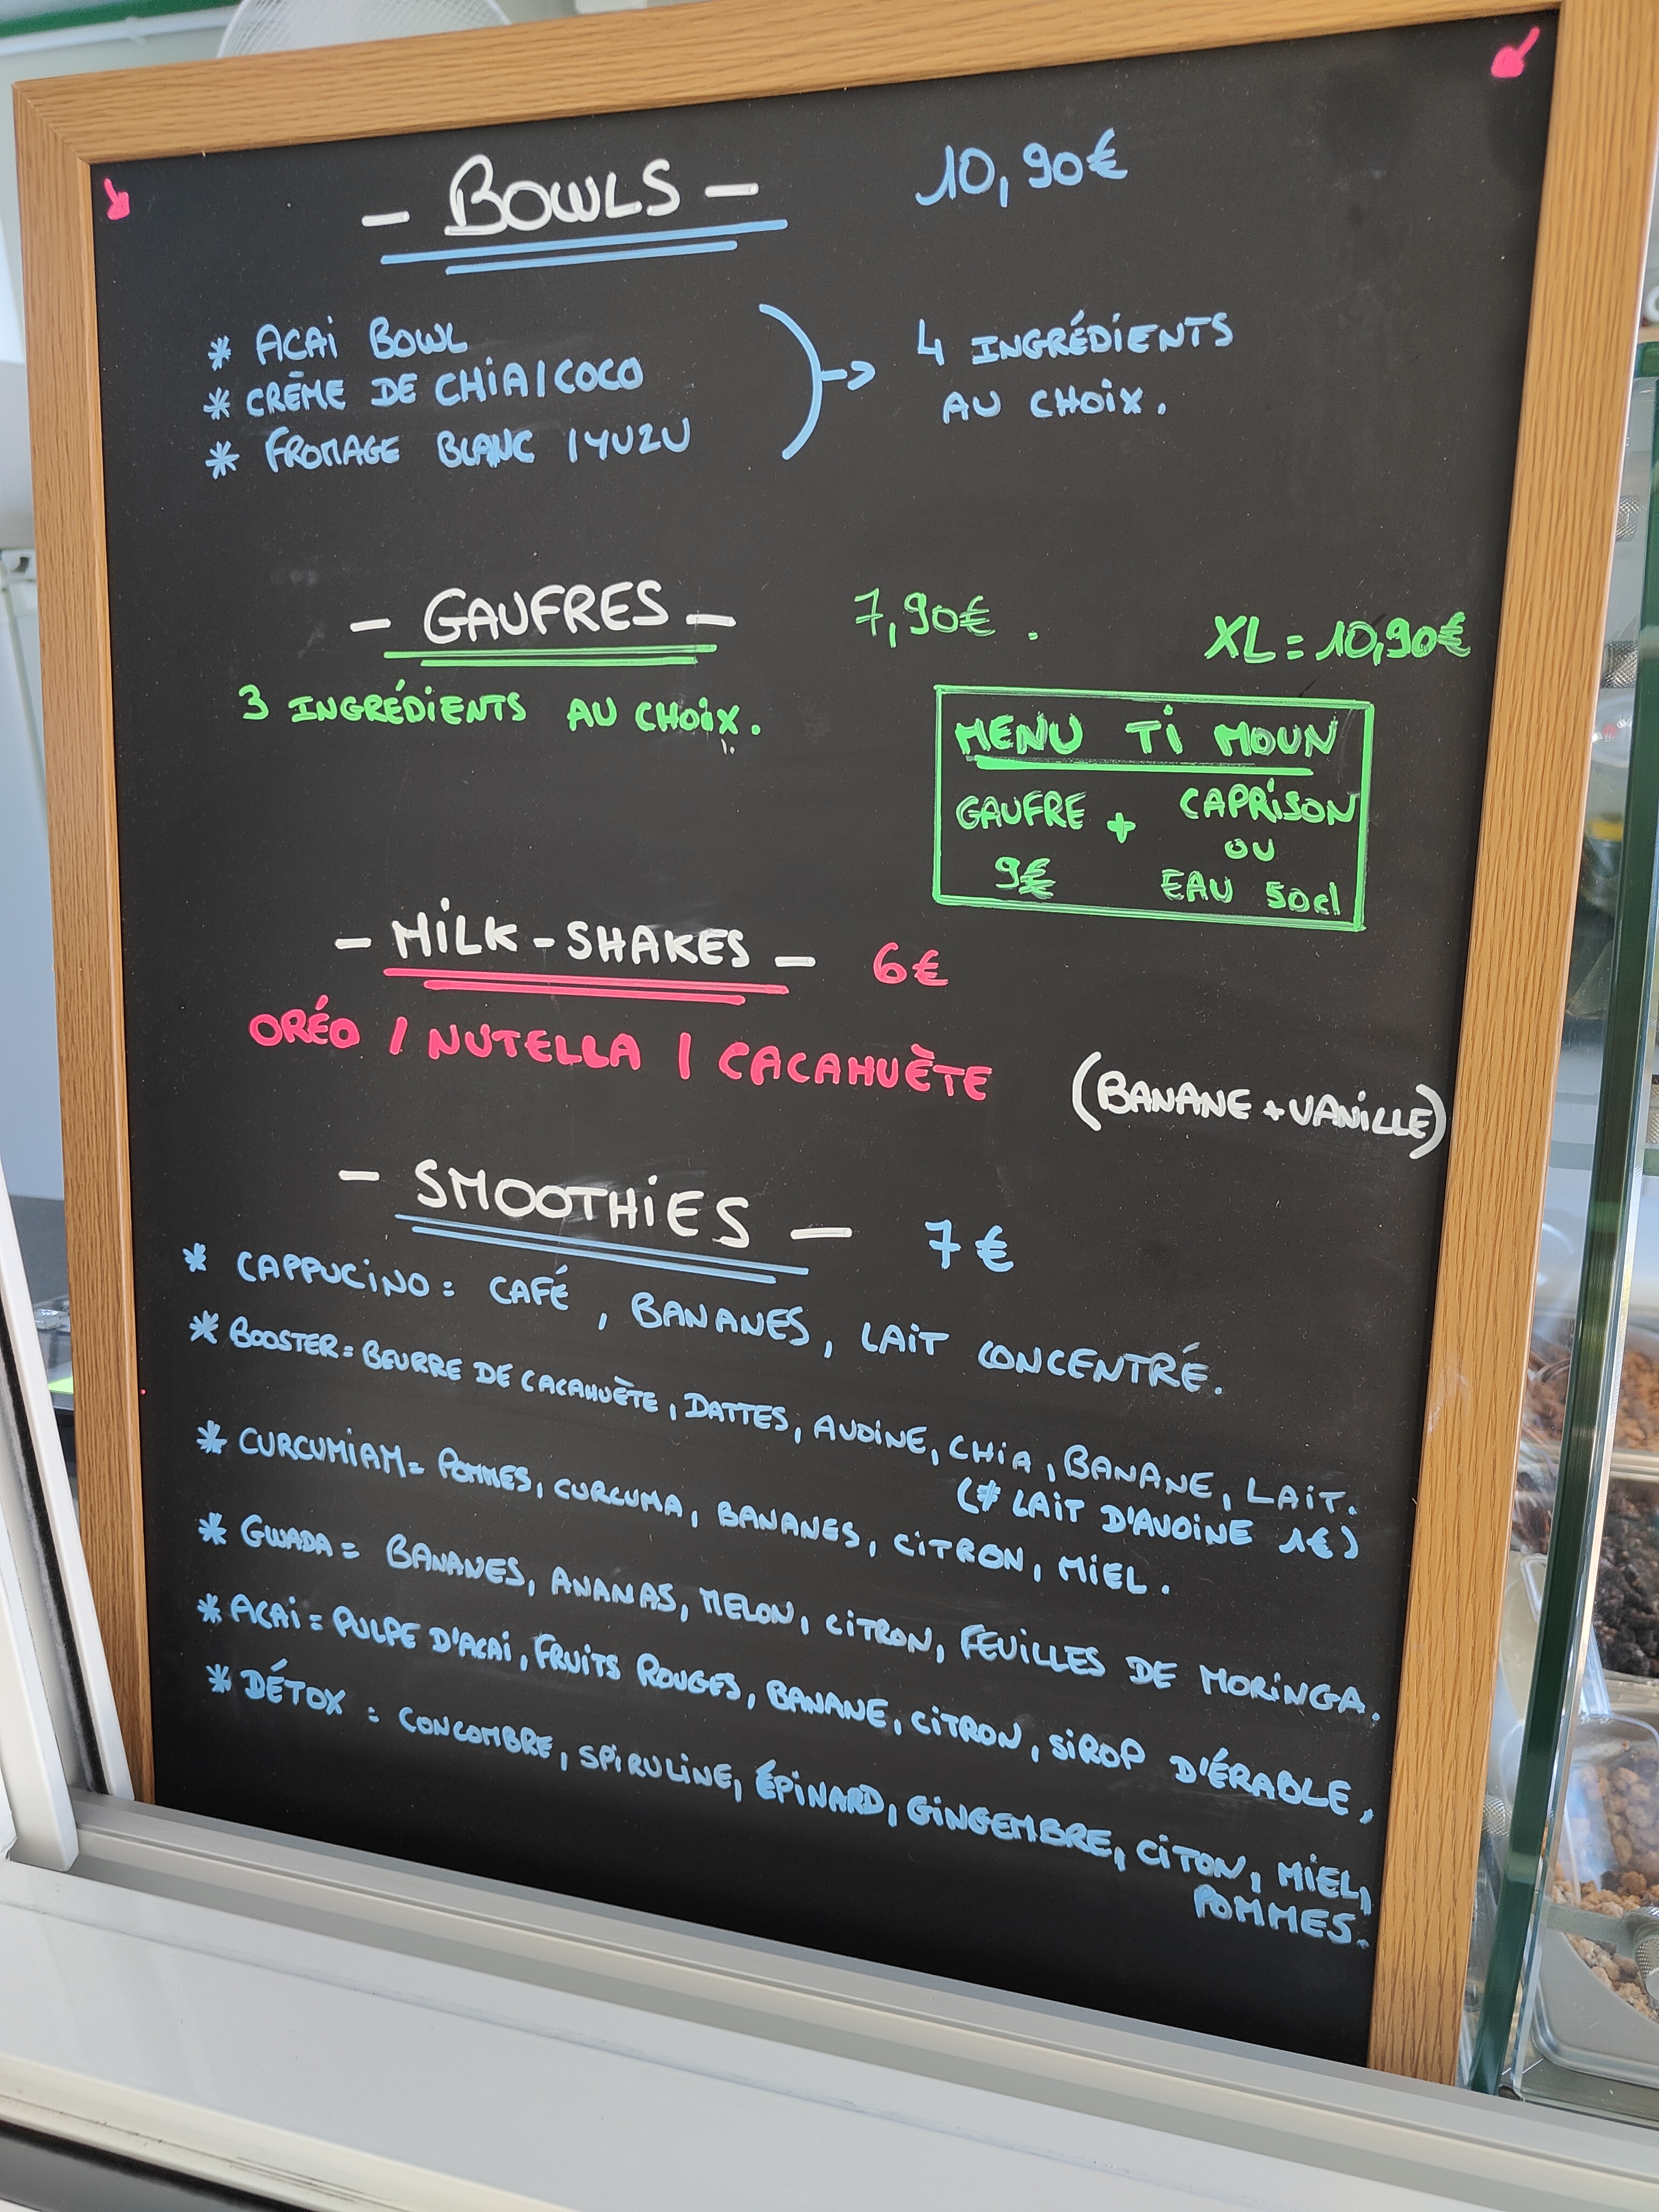 - BOWLS - 10,90€
* ACAI BOWL
* CRÈME DE CHIA/COCO
* FROMAGE BLANC /YUZU
4 INGRÉDIENTS
AU CHOIX.
- GAUFRES - 7,90€. XL = 10,90€
3 INGRÉDIENTS AU CHOIX.
MENU TI MOUN
GAUFRE + CAPRISON
OU
9€ EAU 50cl
- MILK-SHAKES - 6€
ORÉO / NUTELLA / CACAHUÈTE (BANANE + VANILLE)
- SMOOTHIES - 7€
* CAPPUCINO = CAFÉ, BANANES, LAIT CONCENTRÉ.
* BOOSTER = BEURRE DE CACAHUÈTE, DATTES, AVOINE, CHIA, BANANE, LAIT.
(* LAIT D'AVOINE 1€)
* CURCUMIAM = POMMES, CURCUMA, BANANES, CITRON, MIEL.
* GWADA = BANANES, ANANAS, MELON, CITRON, FEUILLES DE MORINGA.
* ACAI = PULPE D'ACAI, FRUITS ROUGES, BANANE, CITRON, SIROP D'ÉRABLE,
* DÉTOX = CONCOMBRE, SPIRULINE, ÉPINARD, GINGEMBRE, CITON, MIEL,
POMMES.